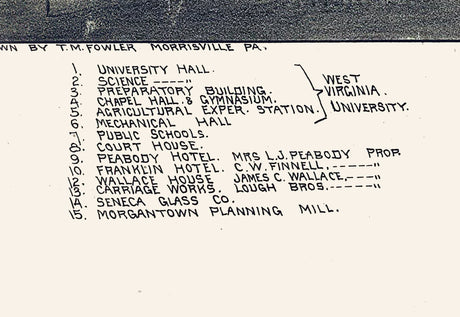 WN BY T.M. FOWLER MORRISVILLE PA.
1. UNIVERSITY HALL.
2. SCIENCE ----"
3. PREPARATORY BUILDING.
4. CHAPEL HALL & GYMNASIUM.
5. AGRICULTURAL EXPER. STATION.
6. MECHANICAL HALL
WEST
VIRGINIA.
UNIVERSITY.
7. PUBLIC SCHOOLS.
8. COURT HOUSE.
9. PEABODY HOTEL. MRS L.J. PEABODY PROP.
10. FRANKLIN HOTEL. C.W. FINNELL, -----"
12. WALLACE HOUSE JAMES C. WALLACE, ----"
13. CARRIAGE WORKS. LOUGH BROS. -----"
14. SENECA GLASS CO.
15. MORGANTOWN PLANNING MILL.